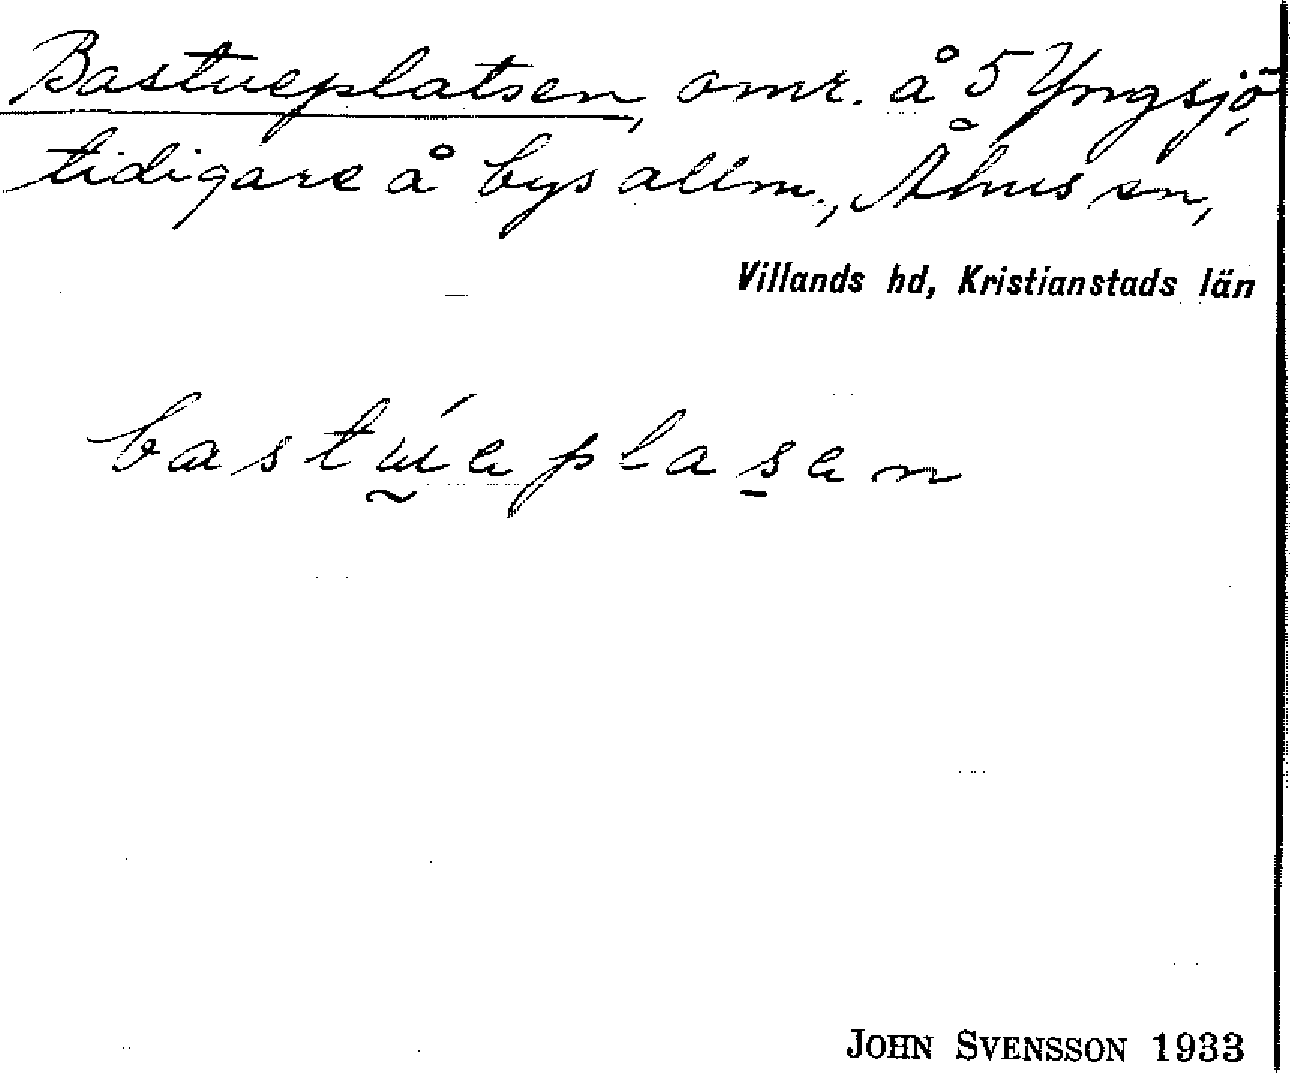 Bastueplatsen, omr. å 5 Yngsjö,
tidigare å bys allm., Åhus sn,
Villands hd, Kristianstads län
bastúeplasen
JOHN SVENSSON 1933